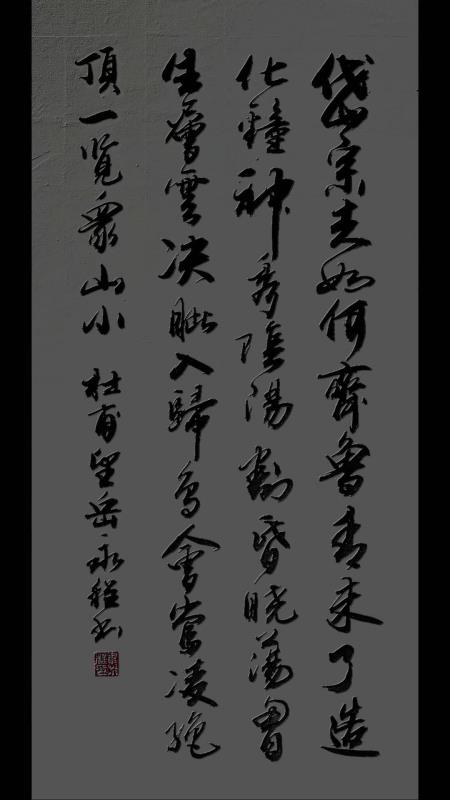 岱宗夫如何齊魯青未了造
化鍾神秀陰陽割昏晓蕩胷
生層雲决眦入歸鳥會當凌絕
頂一览眾山小 杜甫望岳永书